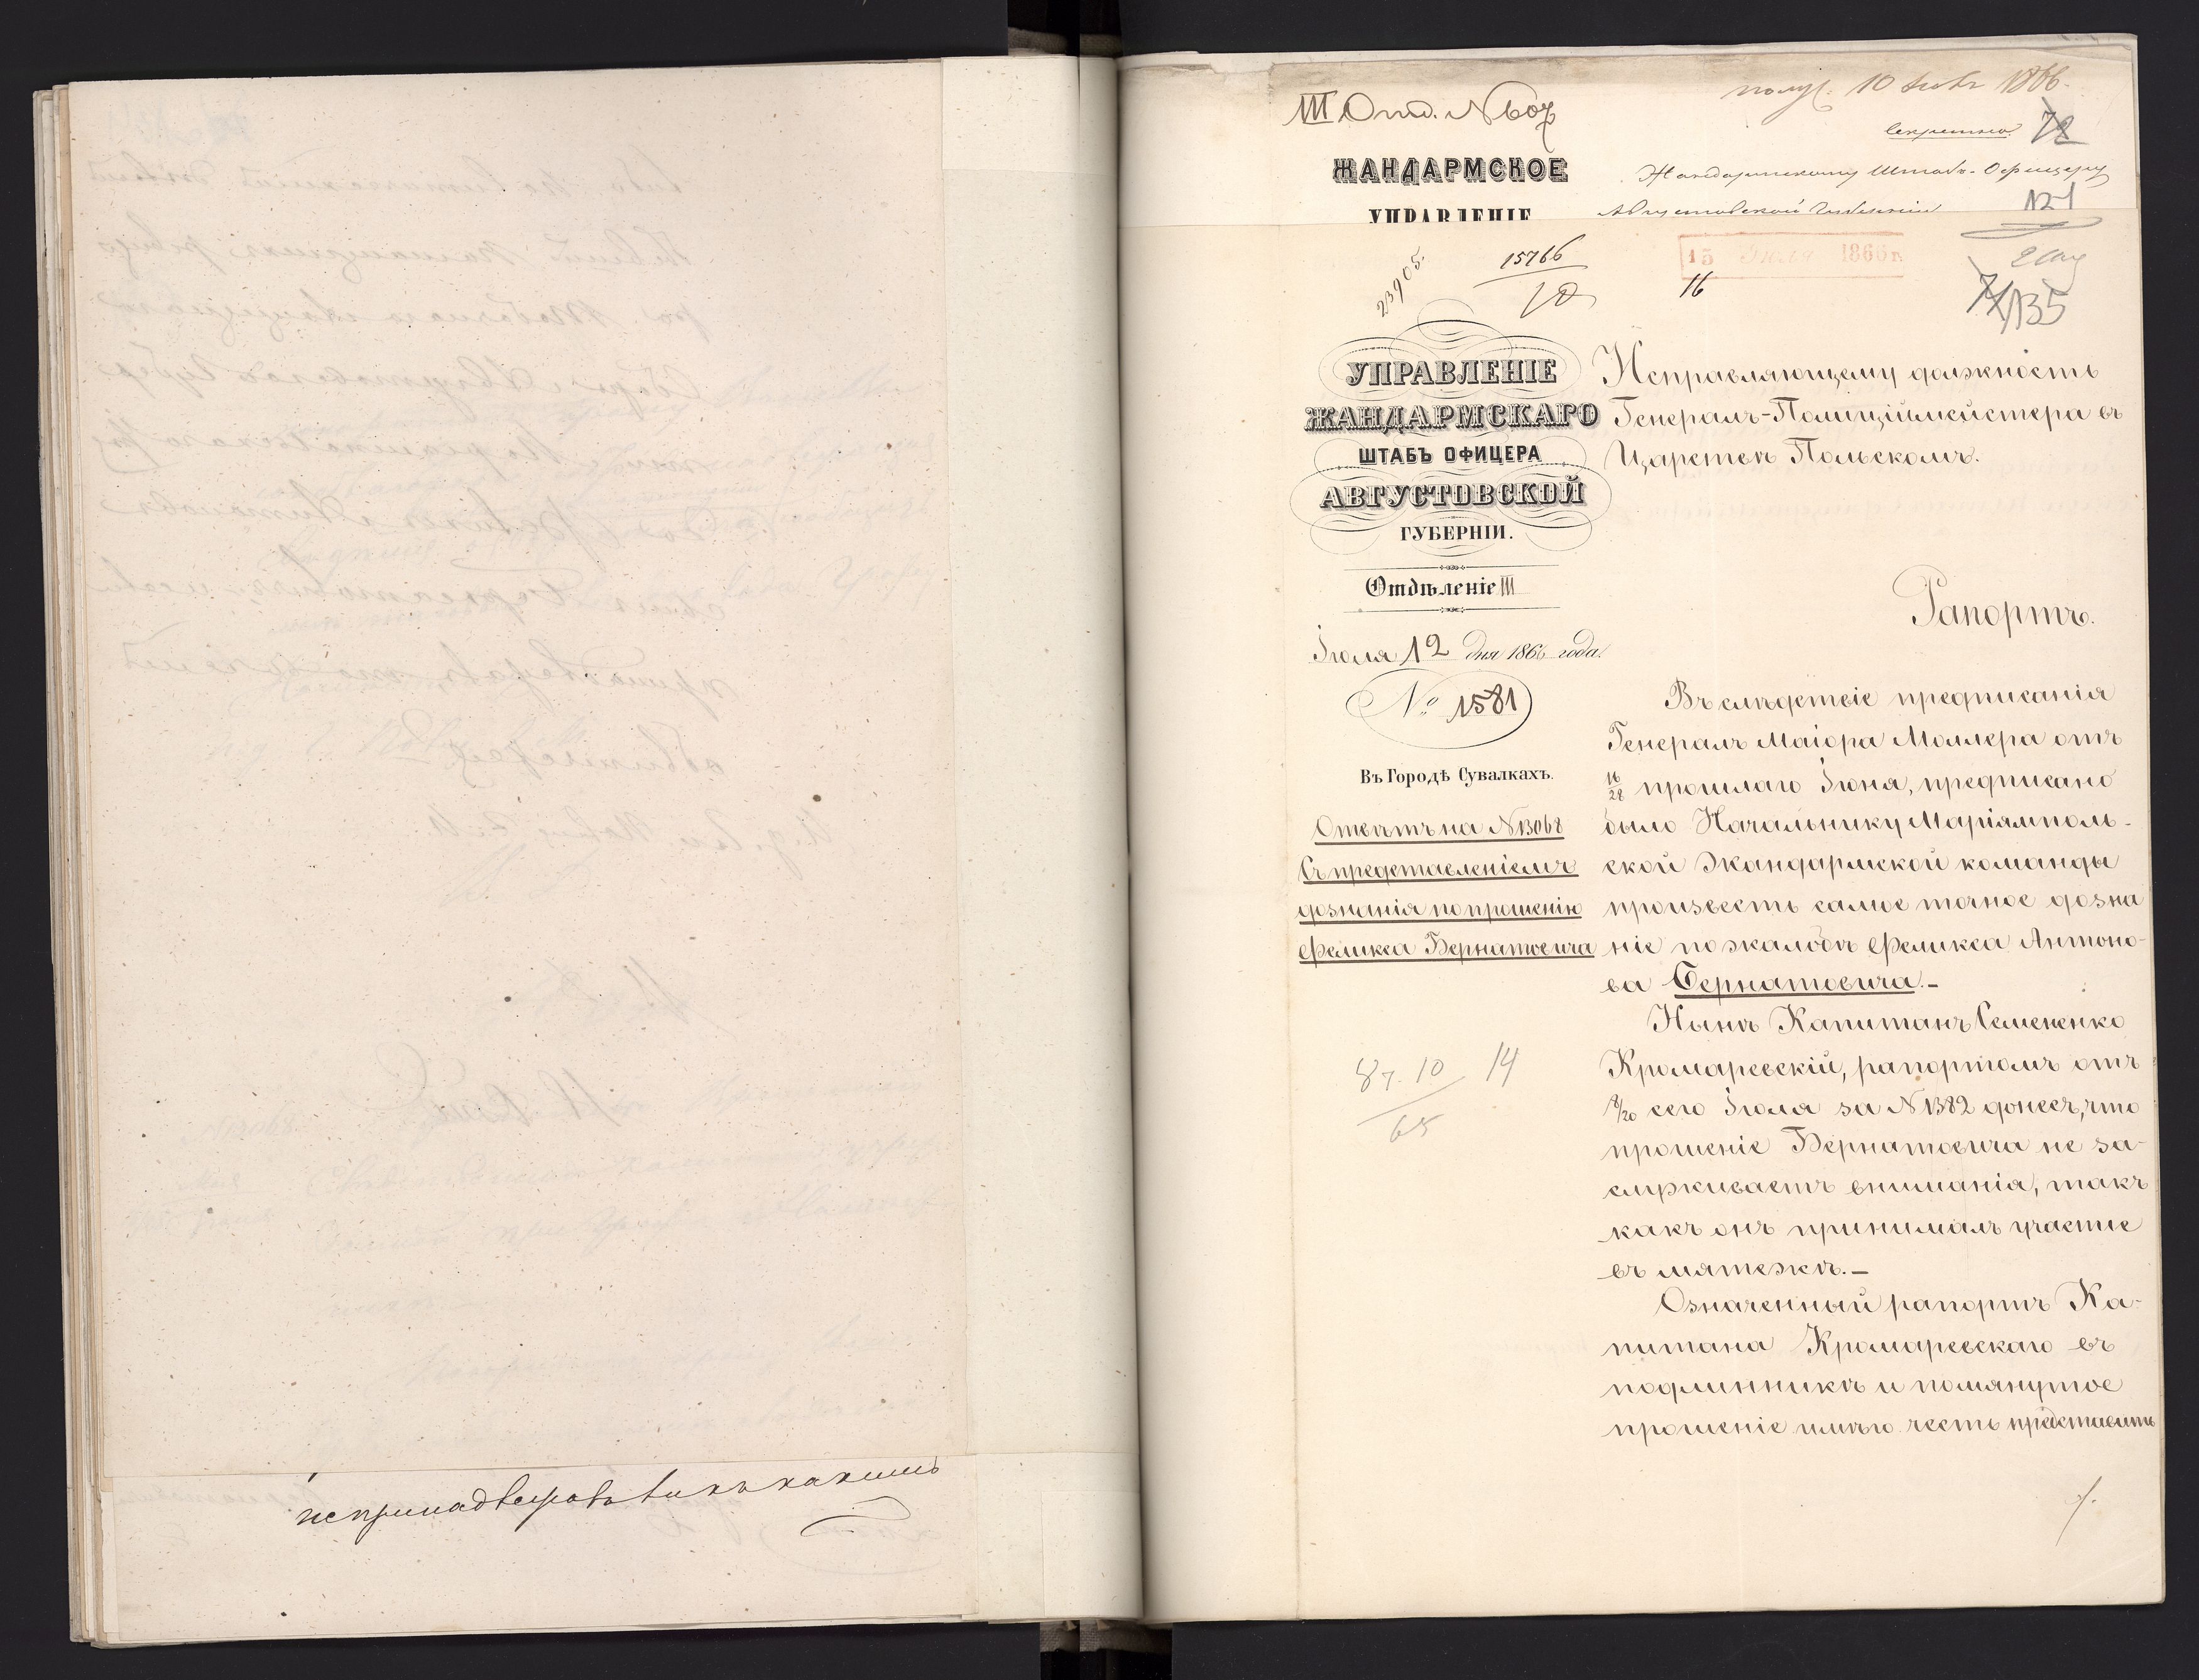 не принадлежалъ ни къ какимъ
III Отд. № 607
получ. 10 Іюля 1866.
Секретно
72
ЖАНДАРМСКОЕ
УПРАВЛЕНІЕ
Жандармскому Штабъ-Офицеру
Августовской Губерніи
121
23905.
15766
10
15 Іюля 1866 г.
16
135
УПРАВЛЕНІЕ
ЖАНДАРМСКАГО
ШТАБЪ ОФИЦЕРА
АВГУСТОВСКОЙ
ГУБЕРНІИ.
Отдѣленіе III
Іюля 12 дня 1866 года.
№ 1581
Въ Городѣ Сувалкахъ.
Отвѣтъ на № 13068
Съ представленіемъ
дознанія по прошенію
Феликса Бернатовича
87. 10 14
65
Исправляющему должность
Генералъ-Полиціймейстера въ
Царствѣ Польскомъ.
Рапортъ.
Въ слѣдствіе предписанія
Генералъ Маіора Моллера отъ
16/28 прошлаго Іюня, предписано
было Начальнику Маріямполь-
ской Жандармской команды
произвесть самое точное дозна
ніе по жалобѣ Феликса Антоно-
ва Бернатовича.-
Нынѣ Капитанъ Семененко
Кромаревскій, рапортомъ отъ
8/20 сего Іюля за № 1382 донесъ, что
прошеніе Бернатовича не за-
служиваетъ вниманія, такъ
какъ онъ принималъ участіе
въ мятежѣ.-
Означенный рапортъ Ка-
питана Кромаревскаго въ
подлинникѣ и помянутое
прошеніе имѣю честь представить